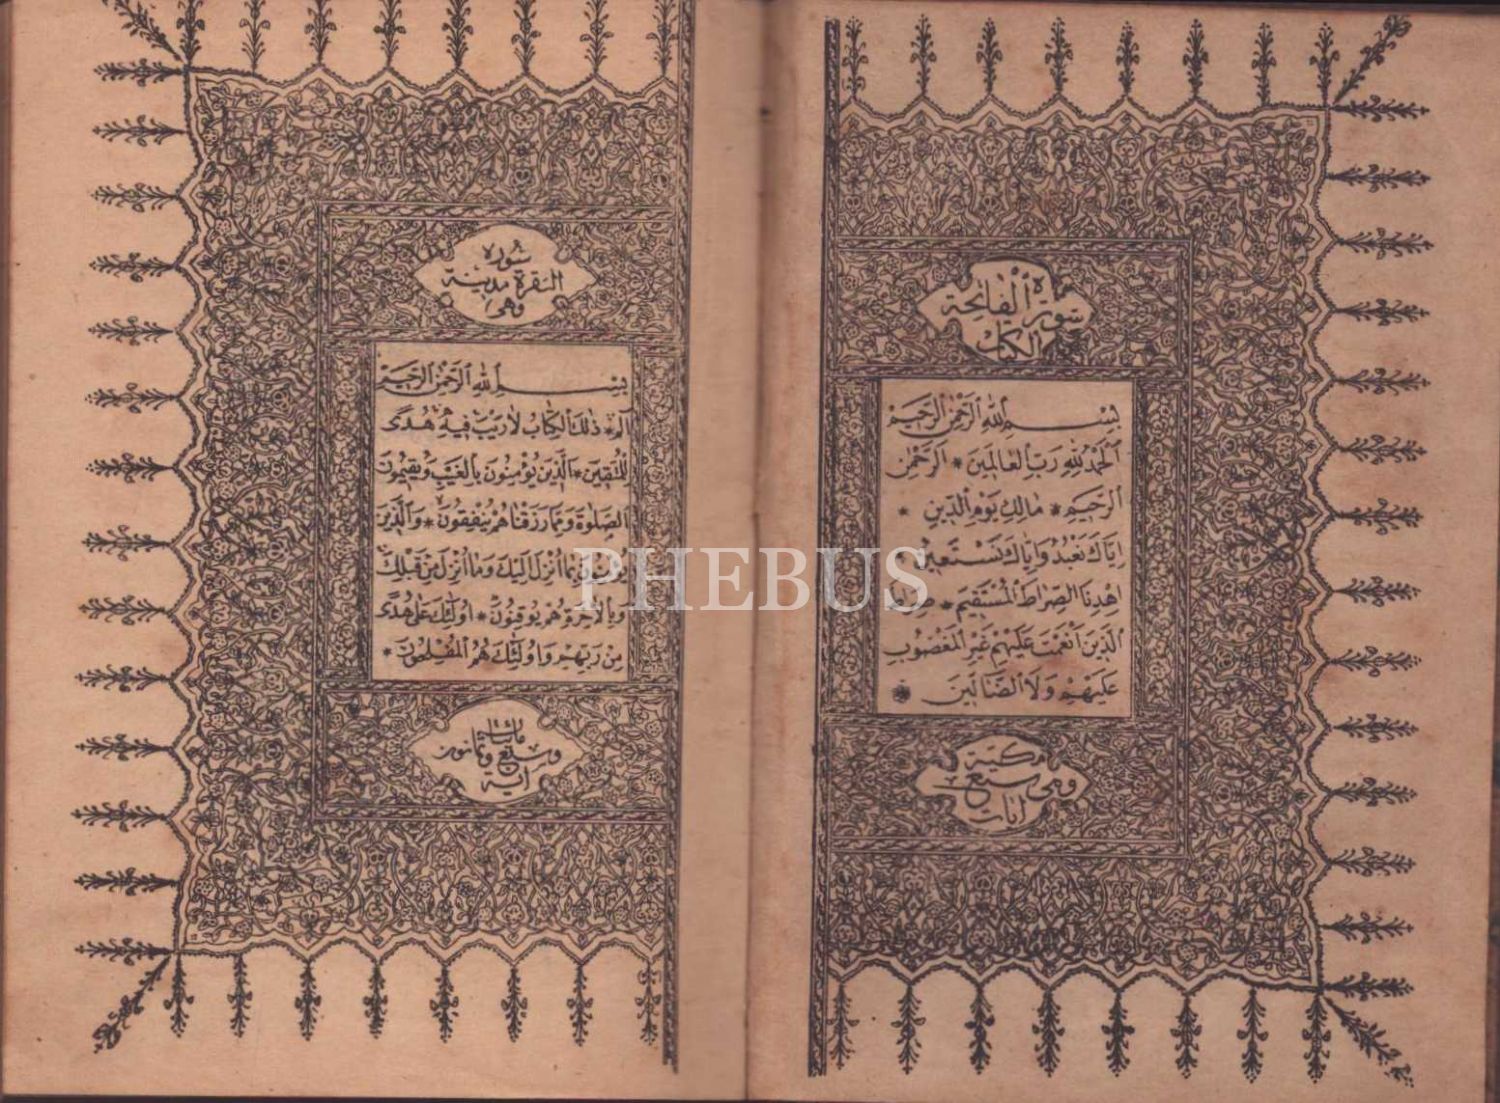 سورة الفاتحة
الكتاب
بسم الله الرحمن الرحيم
الحمد لله رب العالمين * الرحمن
الرحيم * مالك يوم الدين *
اياك نعبد واياك نستعين
اهدنا الصراط المستقيم * صراط
الذين انعمت عليهم غير المغضوب
عليهم ولا الضالين *
مكية
وهى سبع
ايات
سورة
البقرة مدنية
وهى
بسم الله الرحمن الرحيم
الم * ذلك الكتاب لا ريب فيه هدى
للمتقين * الذين يؤمنون بالغيب ويقيمون
الصلوة ومما رزقناهم ينفقون * والذين
يؤمنون بما انزل اليك وما انزل من قبلك
وبالاخرة هم يوقنون * اولئك على هدى
من ربهم واولئك هم المفلحون *
مائتا
وسبع وثمانون
اية
PHEBUS